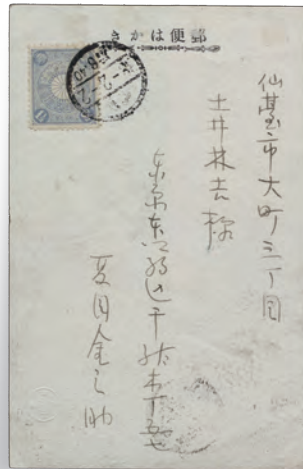 郵便はかき
仙臺市大町三丁目
土井林吉様
東京本郷駒込千駄木五七
夏目金之助